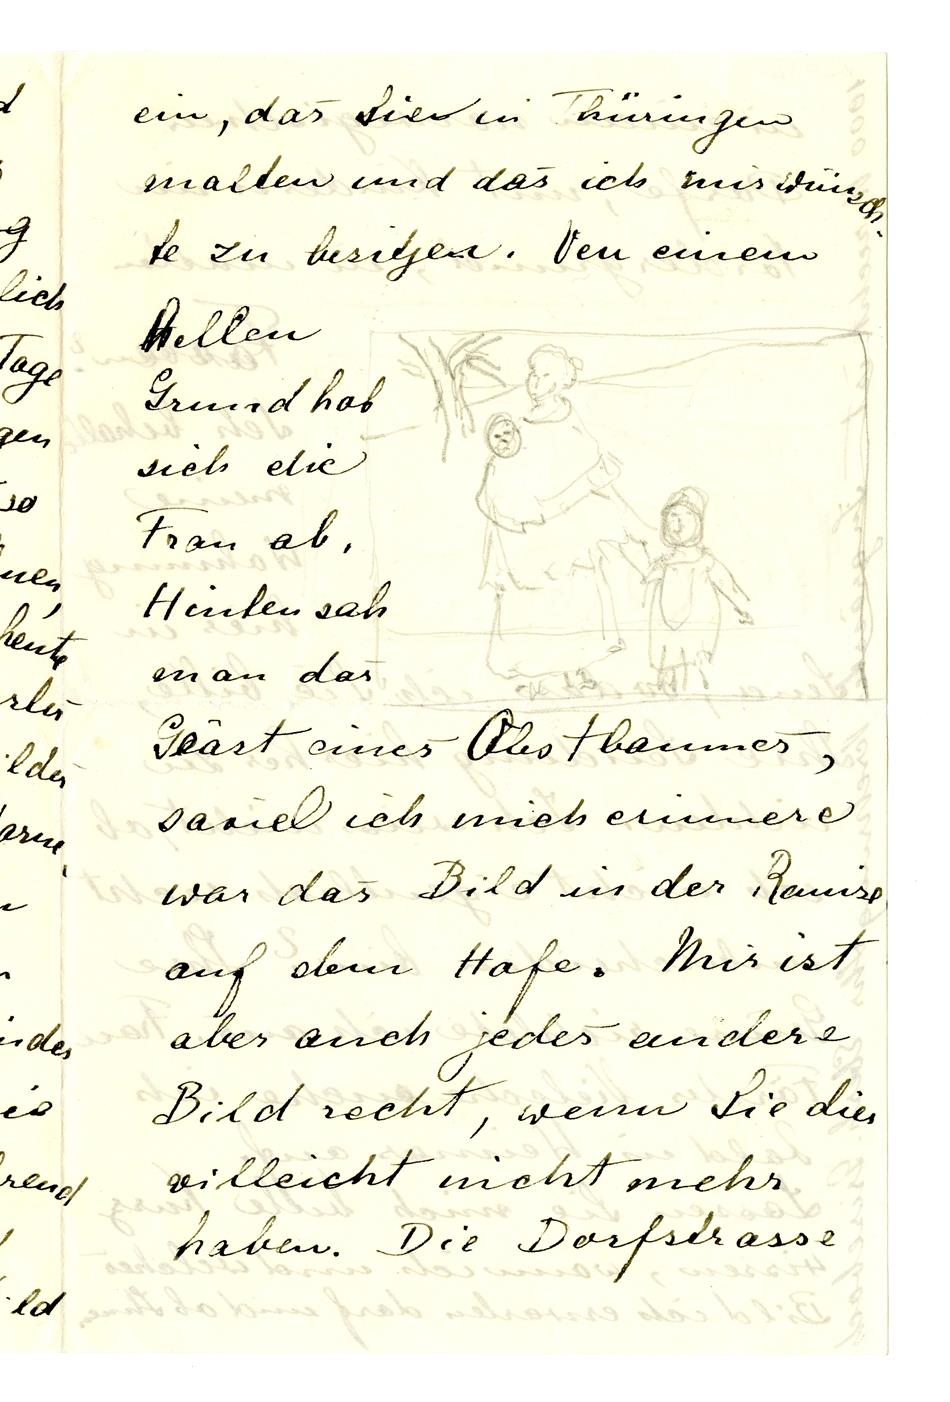 ein, das Sie in Thüringen
malten und das ich mir wünsch-
te zu besitzen. Von einem
hellen
Grund hob
sich die
Frau ab.
Hinten sah
man das
Geäst eines Obstbaumes,
soviel ich mich erinnere
war das Bild in der Remise
auf dem Hofe. Mir ist
aber auch jedes andere
Bild recht, wenn Sie dies
villeicht nicht mehr
haben. Die Dorfstrasse
lich
Tage
gen
so
heute
ilder
indes
rend
ild